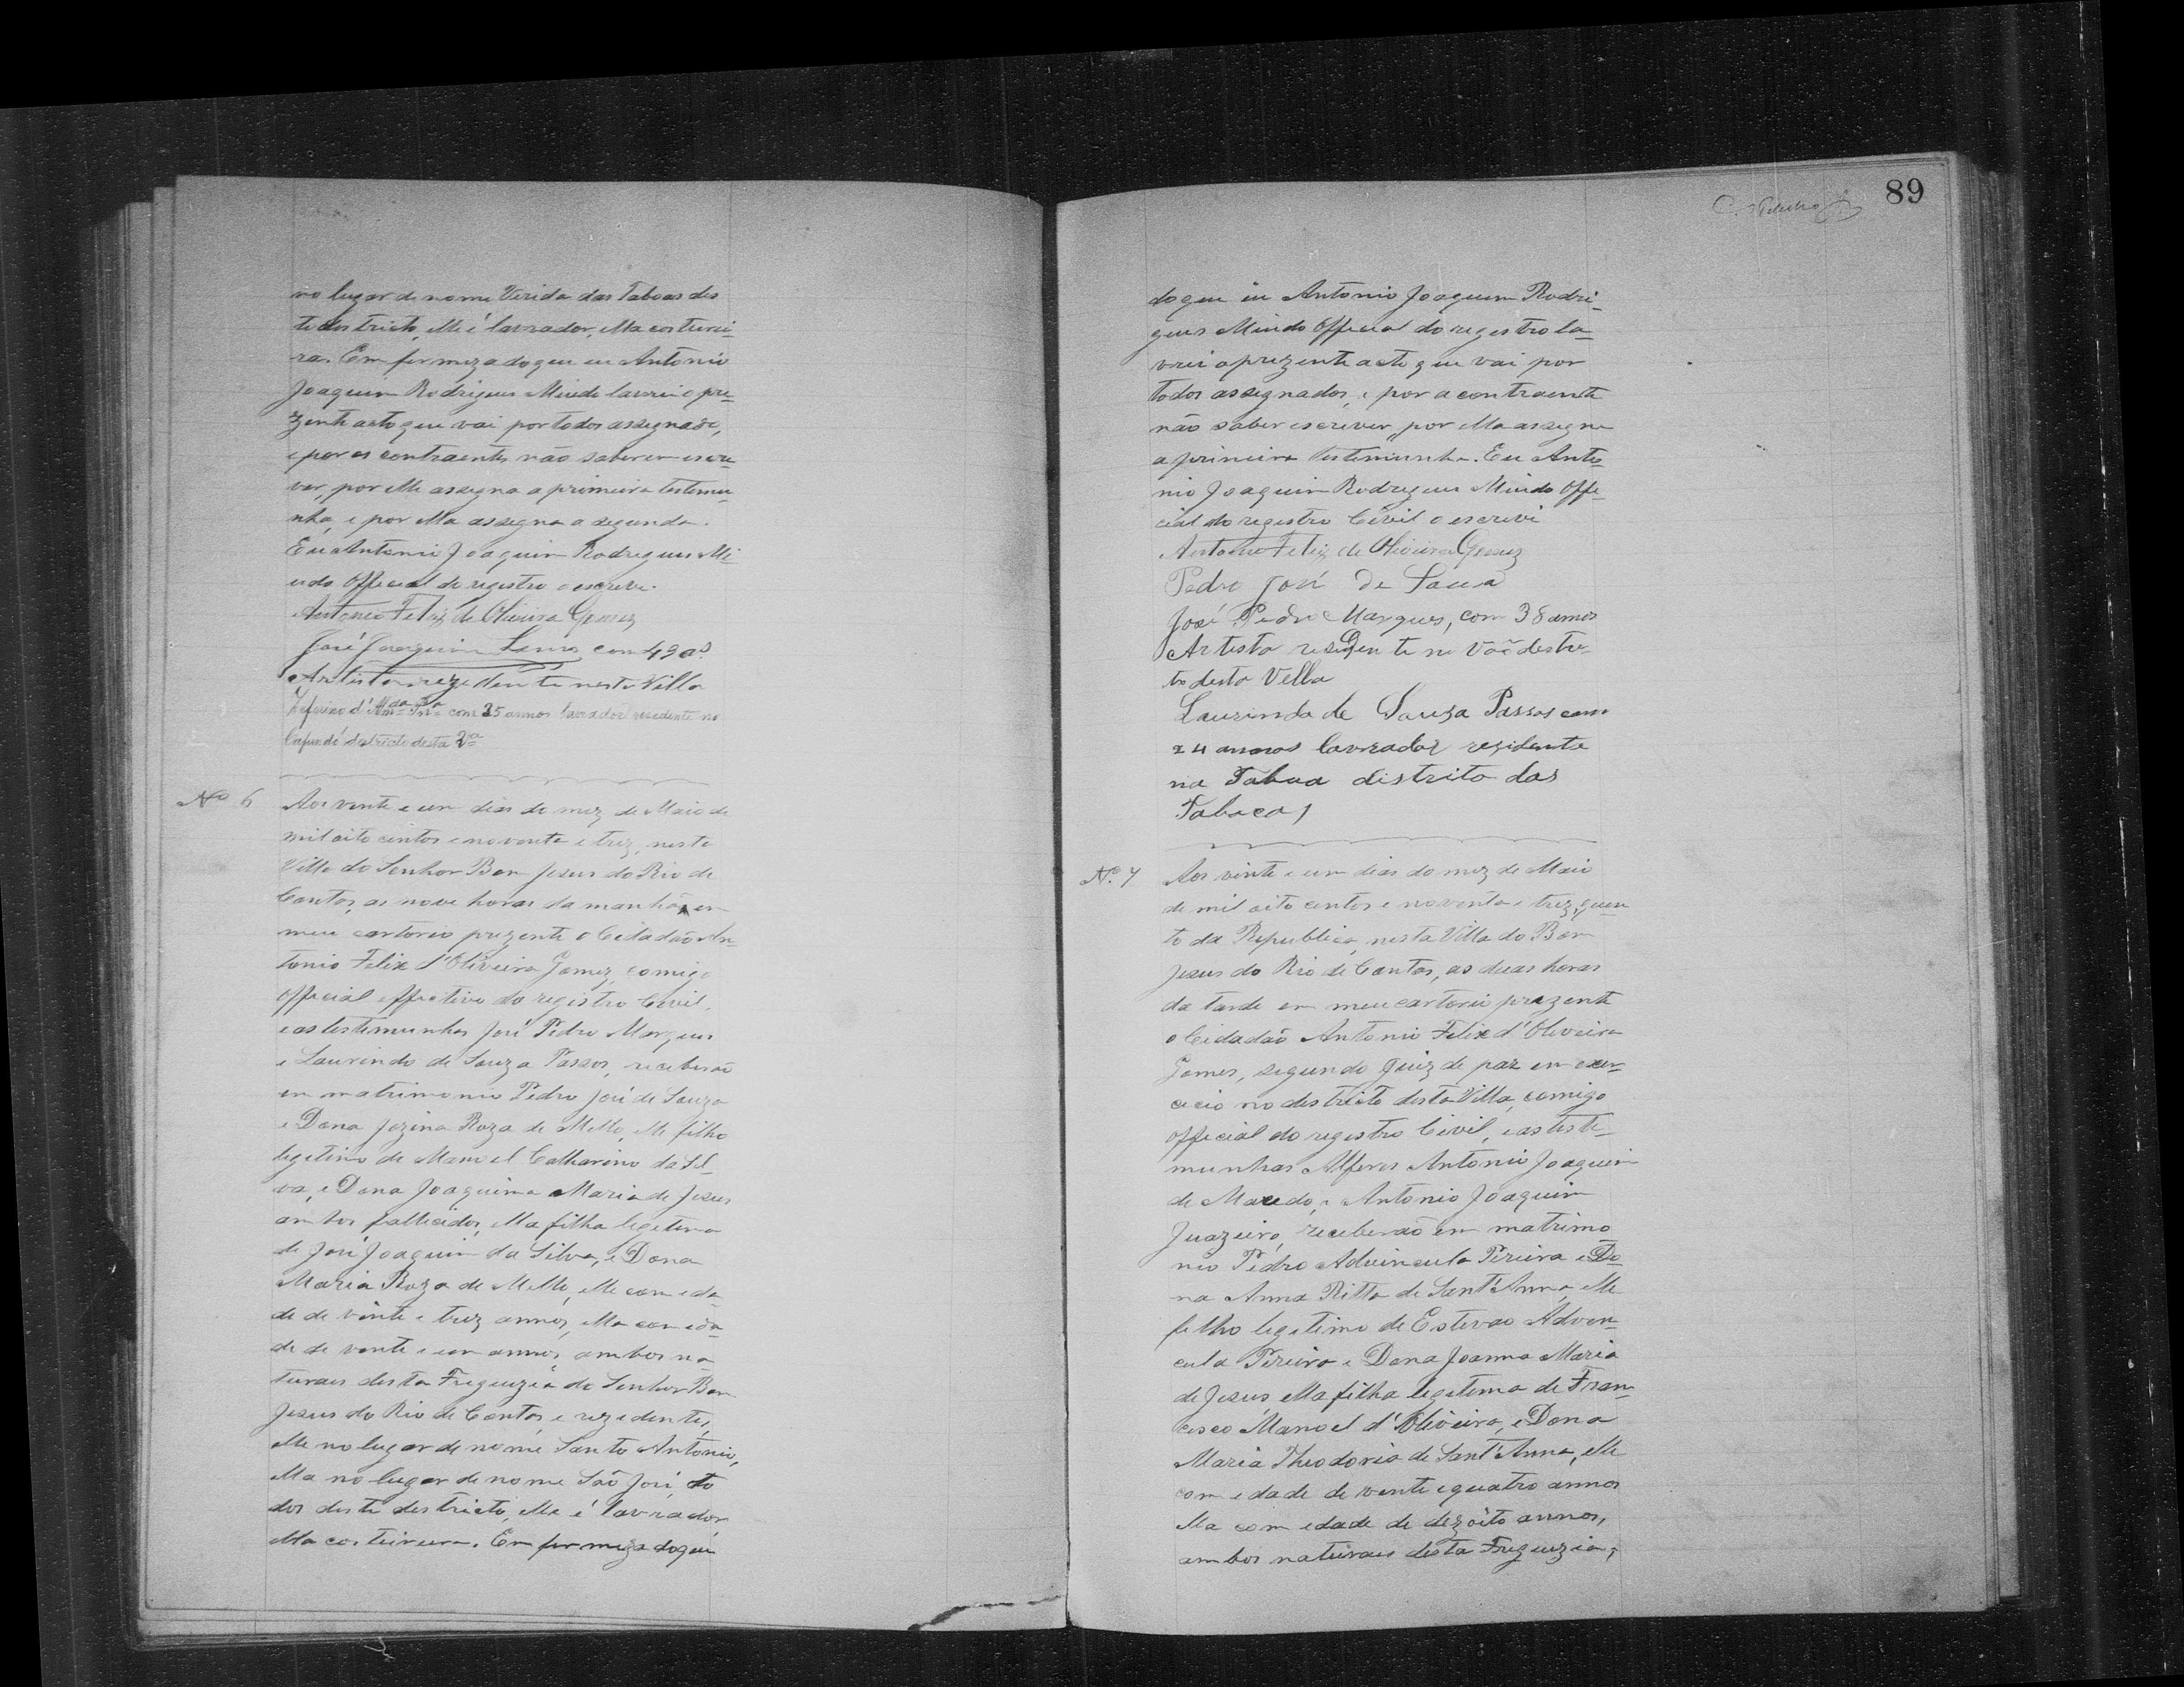 no lugar de nome Verida das Taboas des
te destricto, elle é lavrador, ella costurei-
ra. Em firmeza do que eu Antonio
Joaquim Rodrigues Miudo lavrei o pre-
zente acto que vai por todos assignado,
e por os contraentes não saberem escre-
ver, por elle assigna a primeira testemu-
nha, e por ella assigna a segunda.
Eu Antonio Joaquim Rodrigues Mi-
udo Official do registro o escrevi.
Antonio Feliz de Oliveira Gomes
José Joaquim Lemos com 49 as.
Artista rezidente nesta Villa
Zeferino d'Almda Pra com 25 annos lavrador residente no
Cafundó districto desta Va
No 6
Aos vinte e um dias do mez de Maio de
mil oito centos e noventa e trez, nesta
Villa do Senhor Bom Jesus do Rio de
Contas, as nove horas da manhã, em
meu cartorio prezente o Cidadão An
tonio Felix d'Oliveira Gomez, comigo
official effectivo do registro Civil,
e as testimunhas José Pedro Marques
e Laurindo de Souza Passos, receberão
em matrimonio Pedro José de Souza
e Dona Jozina Roza de Mello, elle filho
legitimo de Manoel Catharino da Sil-
va, e Dona Joaquina Maria de Jesus
ambos fallicidos, ella filha legitima
de José Joaquim da Silva, e Dona
Maria Roza de Mello, elle com eda-
de de vinte e trez annos, ella com eda-
de de vinte e um annos, ambos na
turaes desta Freguezia do Senhor Bom
Jesus do Rio de Contas, e rezidentes,
elle no lugar de nome Santo Antonio,
ella no lugar de nome São José, to
dos deste destricto, elle é lavrador,
ella costureira. Em firmeza do que
89
do que eu Antonio Joaquim Rodri-
gues Miudo Official do registro la-
vrei o prezente acto que vai por
todos assignados, e por a contraente
não saber escrever, por ella assigna
a primeira testimunha. Eu Anto-
nio Joaquim Rodrigues Miudo Offi-
cial do registro Civil o escrevi
Antonio Feliz de Oliveira Gomez
Pedro José de Sousa
José Pedro Marques, com 38 annos
Artista residente no Vão destri-
to desta Villa
Laurindo de Souza Passos com
24 annos lavrador residente
na Tabua distrito das
Nº 7
Aos vinte e um dias do mez de Maio
de mil oito centos e noventa e trez, quin
to da Republica, nesta Villa do Bom
Jesus do Rio de Contas, as duas horas
da tarde em meu cartorio prezente
o Cidadão Antonio Felix d'Oliveira
Gomes, segundo Juiz de paz em exer-
cicio no destricto desta Villa, comigo
official do registro Civil, e as teste-
munhas Alferes Antonio Joaquim
de Macedo, e Antonio Joaquim
Juazeiro, receberão em matrimo
nio Pedro Advincula Pereira e Do-
na Anna Ritta de Sant'Anna, elle
filho legitimo de Estevão Advin-
cula Pereira e Dona Joanna Maria
de Jesus, ella filha legitima de Fran-
cisco Manoel d'Oliveira, e Dona
Maria Theodoria de Sant'Anna, elle
com edade de vinte e quatro annos
ella com edade de dezoito annos,
ambos naturaes desta Freguezia,